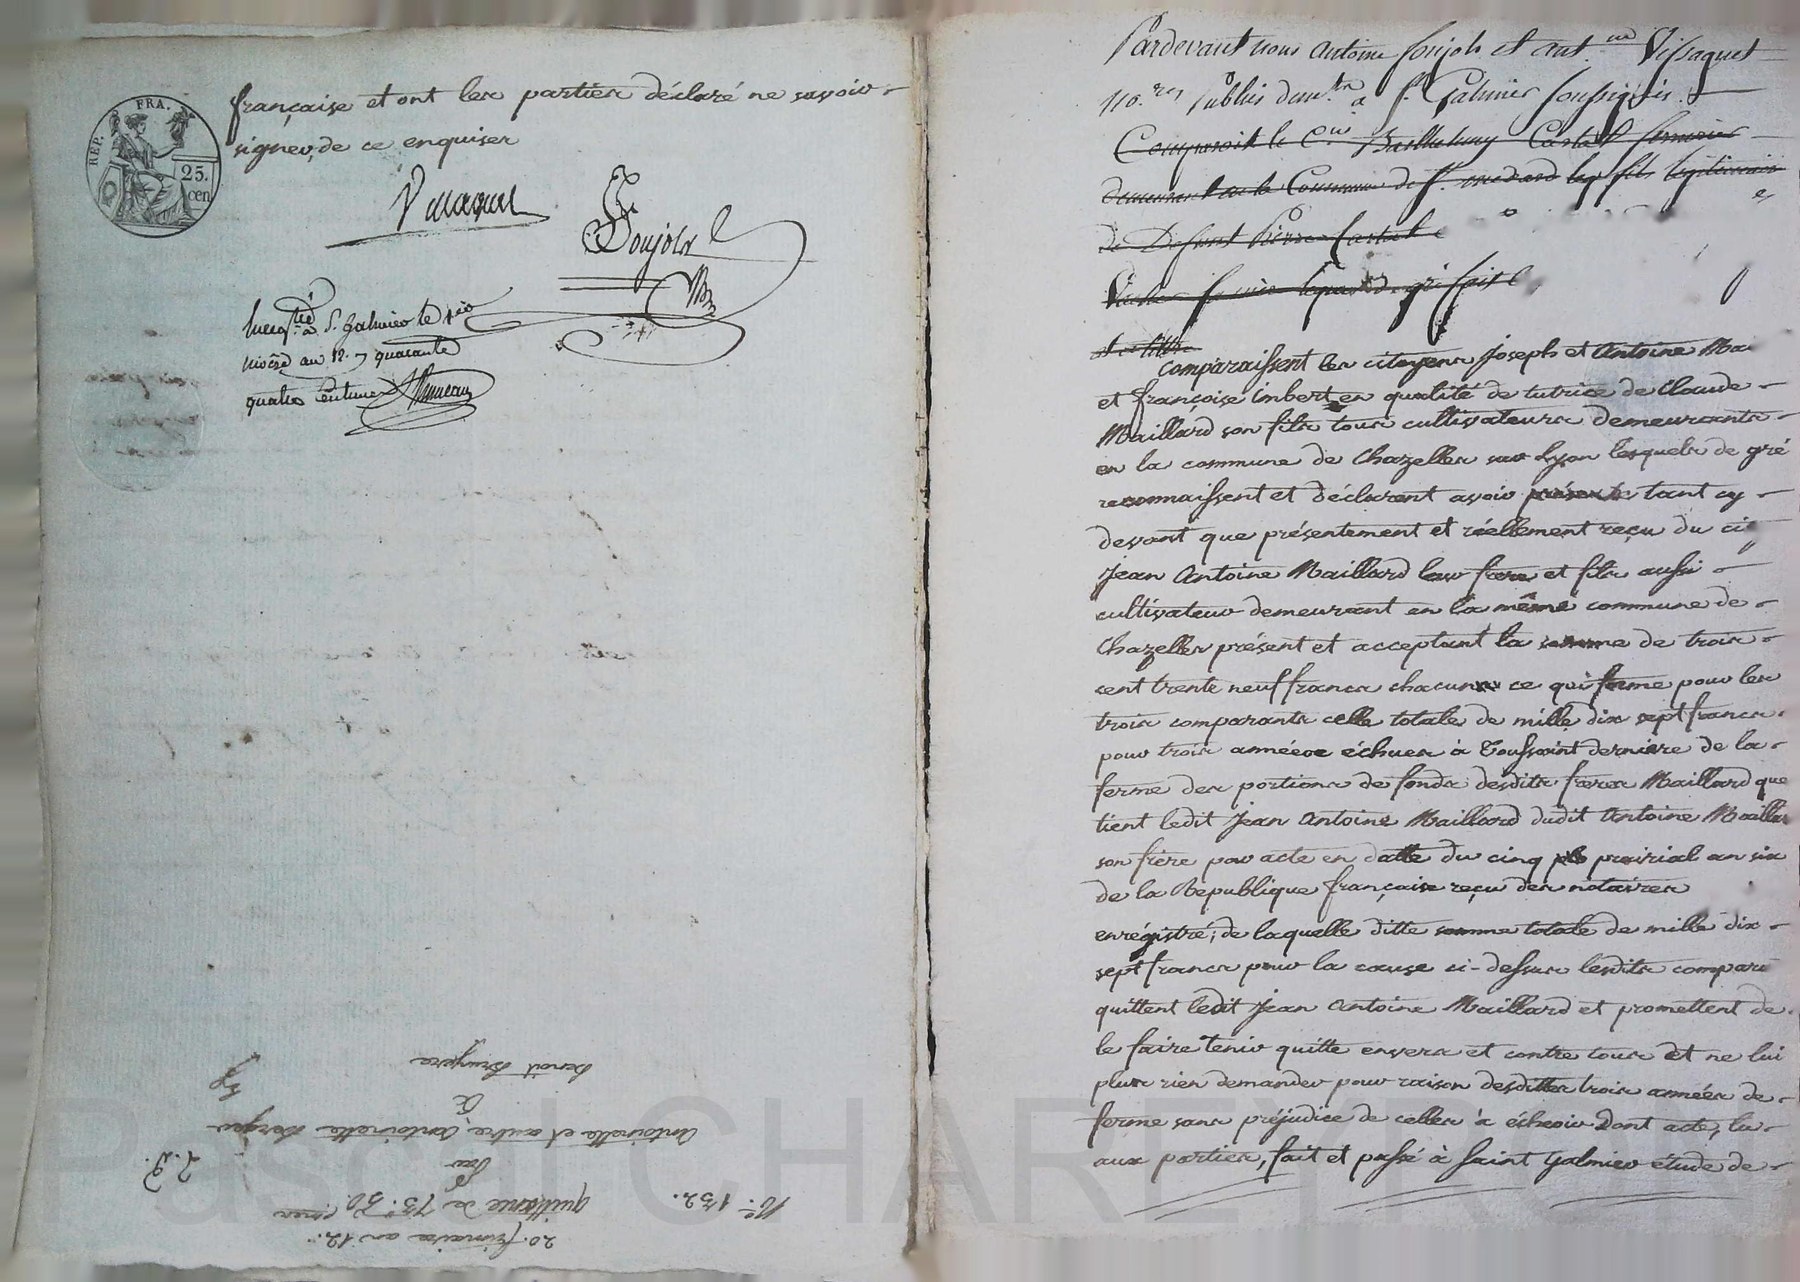 REP. FRA.
25. cen
française et ont les parties déclaré ne savoir
signer, de ce enquises
Poujols
à St. Galmier le
nivôse an 12. quarante
quatre Centimes
Benoit Bruyere
&
Antoinette et autre Antoinette
par
quittance de 73. 50.
No. 132.
20. frimaire an 12.
Pardevant nous Antoine Poujols et ant.ne Vissaguet
no.res Publics à St. Galmier soussignés
Comparait le C.en Barthelemy
demeurant en la Commune de St. medard fils
de Defunt Pierre
comparaissent les citoyens Joseph et Antoine Mai
et françoise imbert en qualité de tutrice de Claude
Maillard son fils tous cultivateurs demeurants
en la commune de Chazelles sur Lyon lesquels de gré
reconnaissent et déclarent avoir tant cy
devant que présentement et réellement reçu du ci
Jean Antoine Maillard leur frere et fils aussi
cultivateur demeurant en la même commune de
Chazelles présent et acceptant la somme de trois
cent trente neuf francs chacun ce qui forme pour les
trois comparants celle totale de mille dix sept francs
pour trois années échues à Toussaint derniere de la
ferme des portions de fonds desdits freres Maillard que
tient ledit Jean Antoine Maillard dudit Antoine Maillar
son frère par acte en datte du cinq prairial an six
de la Republique française reçu des notaires
enrégistré; de laquelle ditte somme totale de mille dix
sept francs pour la cause ci-dessus lesdits compara
quittent ledit Jean Antoine Maillard et promettent de
le faire tenir quitte envers et contre tous et ne lui
plus rien demander pour raison desdittes trois années de
ferme sans préjudice de celles à échoir Dont acte, lu
aux parties, fait et passé à Saint Galmier étude de
Pascal CHAREYRON